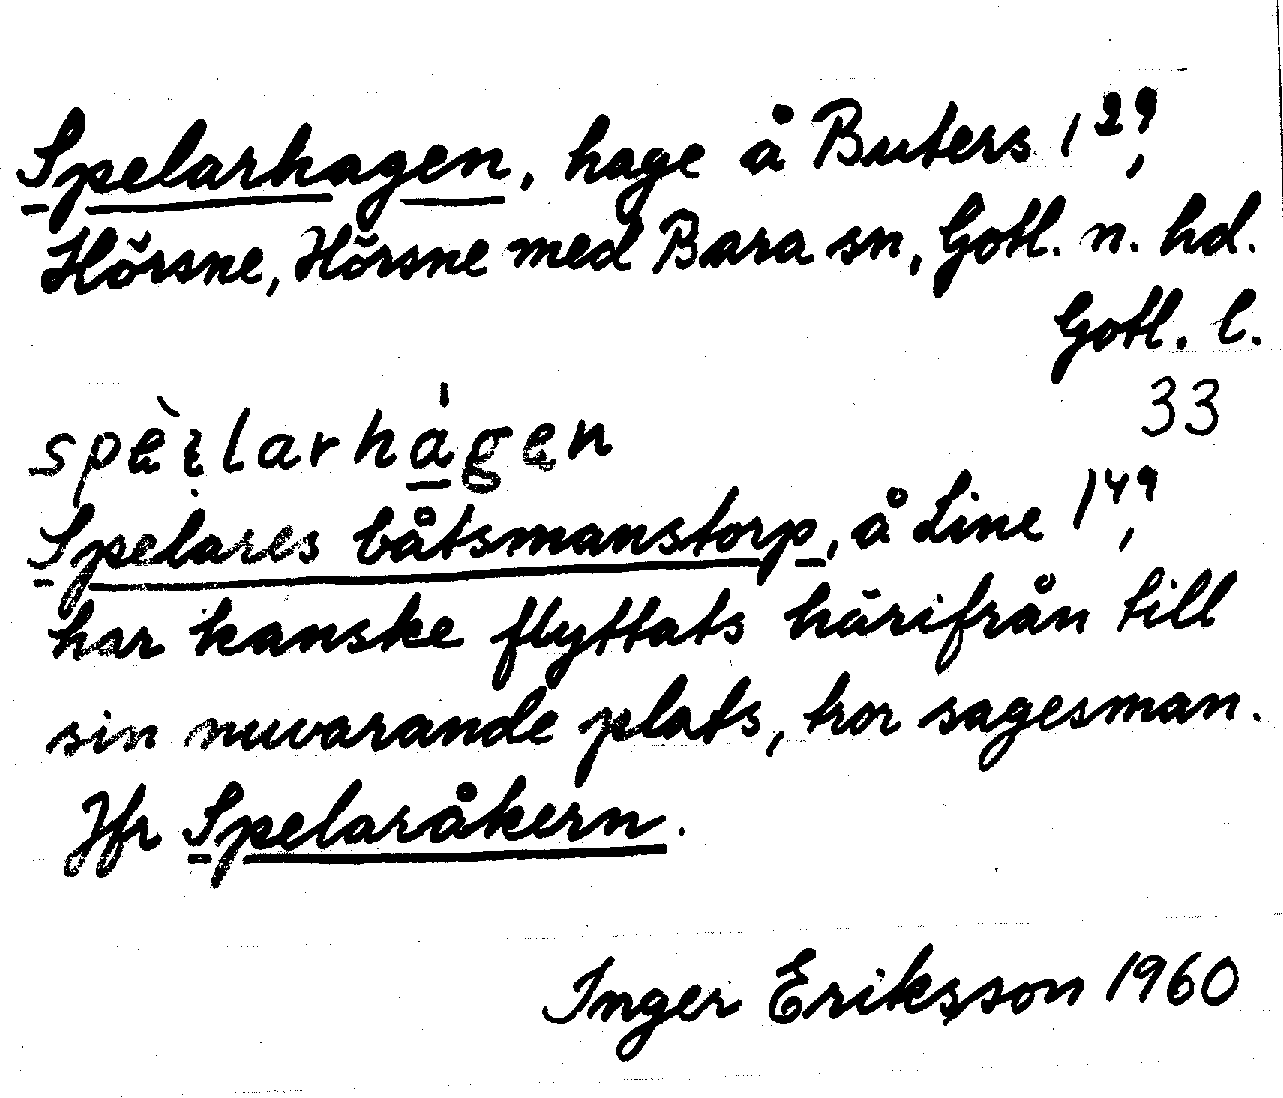 Spelarhagen, hage å Buters 1²⁹,
Hörsne, Hörsne med Bara sn, Gotl. n. hd.
Gotl. l.
33
spèɪlarhágen
Spelares båtsmanstorp, å Line 1⁴⁹,
har kanske flyttats härifrån till
sin nuvarande plats, tror sagesman.
Jfr Spelaråkern.
Inger Eriksson 1960